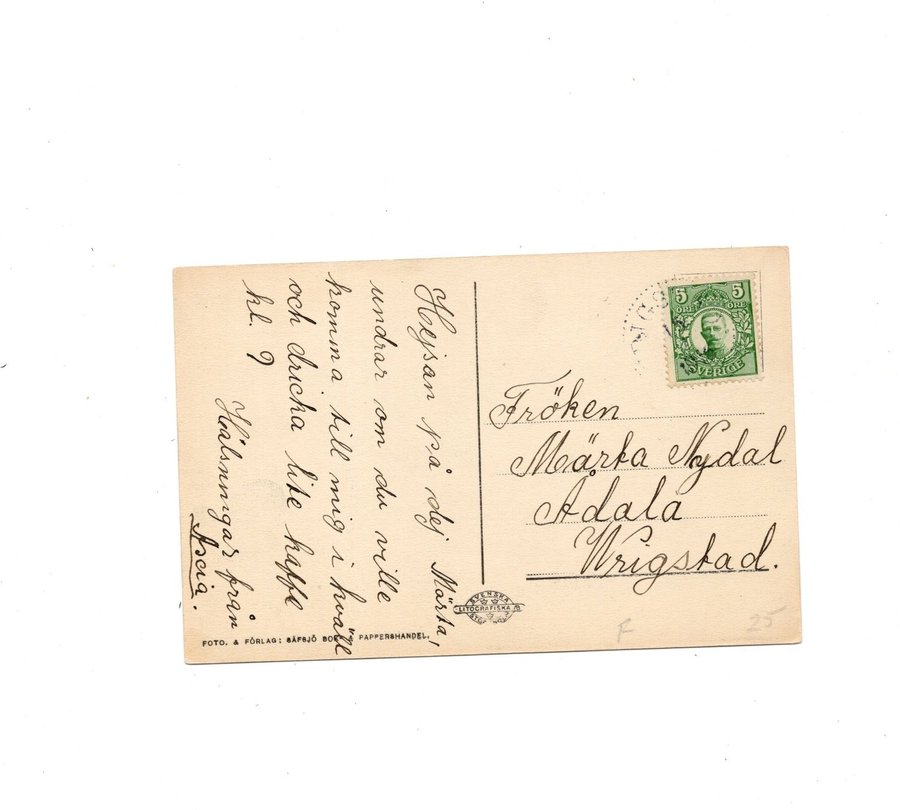 Hejsan på dej Märta,
undrar om du ville
komma till mig i hväll
och dricka lite kaffe
kl. 7
Hälsningar från
Ascia.
5 5
ÖRE ÖRE
SVERIGE
Fröken
Märta Nydal
Ådala
Wrigstad.
SVENSKA
LITOGRAFISKA
FOTO. & FÖRLAG: SÄFSJÖ BOK- PAPPERSHANDEL.
F
25